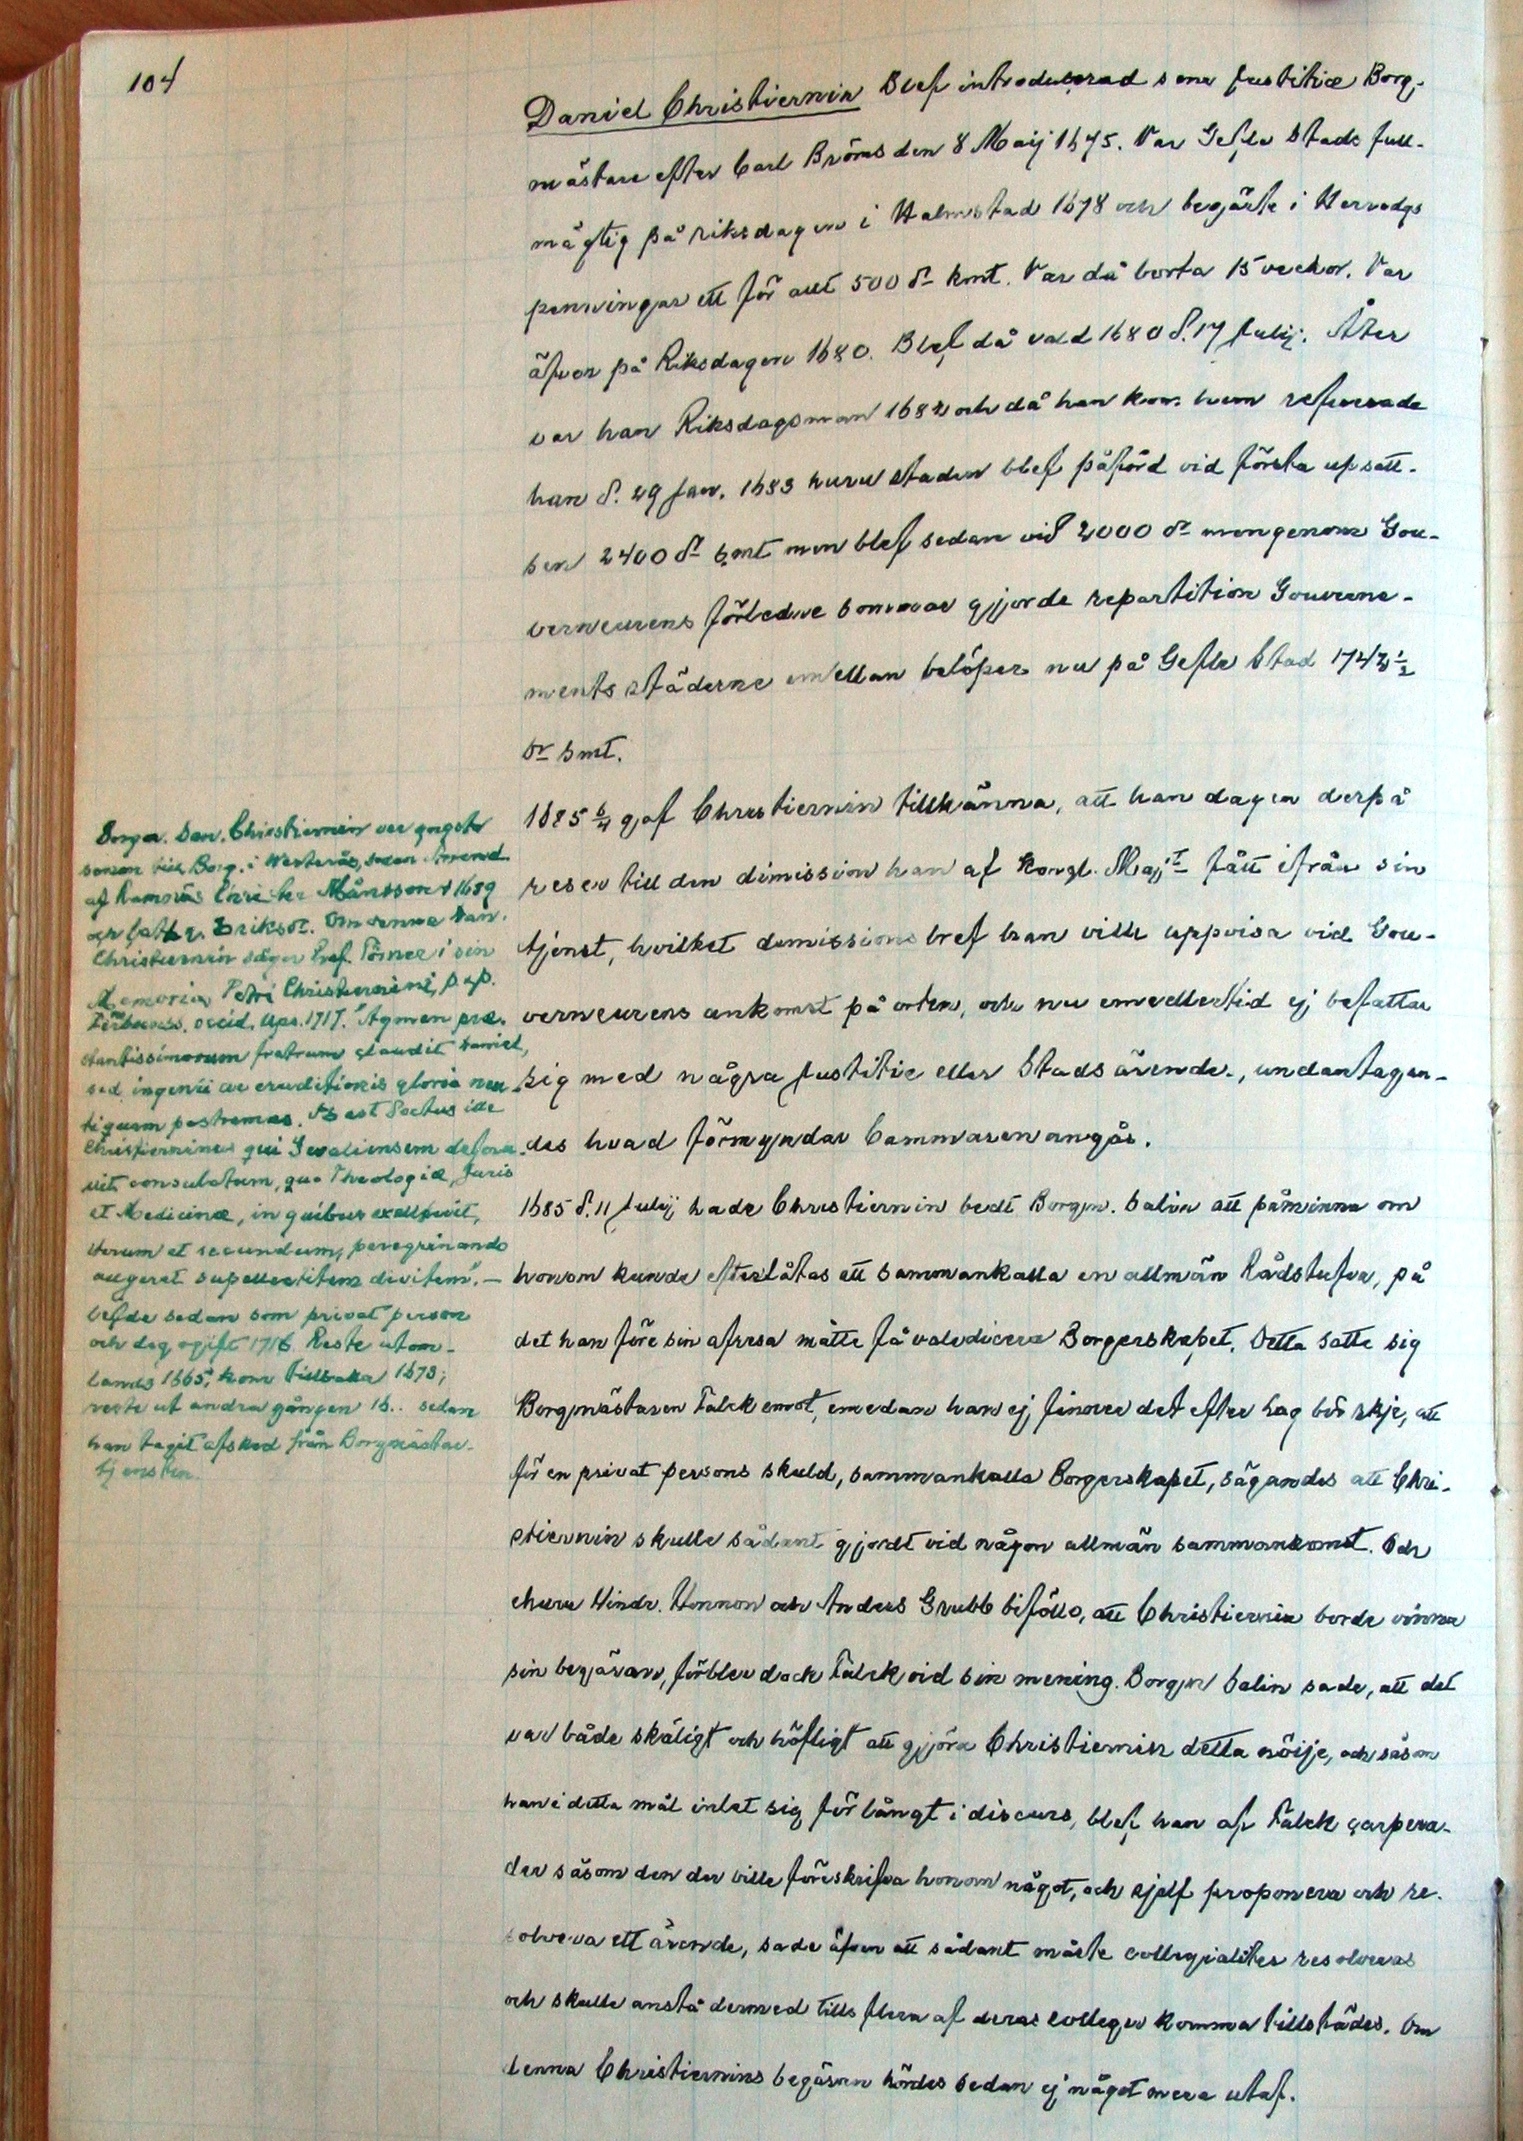 104
Daniel Christiernin Blef introducerad som Justitiæ Borg-
mästare efter Carl Bröms den 8 Maij 1675. Var Gefle Stads full-
mägtig på riksdagen i Halmstad 1678 och begärte i Herredgs
penningar ett för allt 500 dr kmt. Var då borta 15 veckor. Var
äfven på Riksdagen 1680. Blef då vald 1680 d. 17 Julij. Åter
var han Riksdagsman 1682 och då han kom hem refererade
han d. 29 Jan. 1683 huru staden blef påförd vid första upsätt-
sen 2400 dr smt men blef sedan vid 2000 dr men genom Gou-
verneurens förledne sommar gjjorde repartition Gouverne-
ments städerne emellan belöper nu på Gefle Stad 1743 1/2
dr smt.
1685 6/4 gaf Christiernin tillkänna, att han dagen derpå
reser till den dimission han af Kongl. Majt fått ifrån sin
tjenst, hvilket demissions bref han ville uppvisa vid Gou-
verneurens ankomst på orten, och nu emedlertid ej befattar
sig med några Justitie eller Stads ärende, undantagan-
des hvad förmyndar Cammaren angår.
1685 d. 11 Julij hade Christiernin bedt Borgm. Salin att påminna om
honom kunde efterlåtas att sammankalla en allmän Rådstufva, på
det han före sin afresa måtte få valedicera Borgerskapet. Detta satte sig
Borgmästaren Falck emot, emedan han ej finner det efter Lag bör skje, att
för en privat persons skuld, sammankalla Borgerskapet, sägandes att Chri-
stiernin skulle sådant gjordt vid någon allmän sammankomst. Och
ehuru Hindr. Hennon och Anders Grubb biföllo, att Christiernin borde vinna
sin begäran, förblev dock Falck vid sin mening. Borgm Salin sade, att det
var både skäligt och höfligt att gjöra Christiernin detta nöije, och såsom
han i detta mål inlat sig för långt i discurs, blef han af Falck carpera-
der såsom den der ville föreskrifva honom något, och sjelf proponera och re-
solvera ett ärende, sade äfven att sådant måste collegialiter resolveras
och skulle anstå dermed tills flera af deras colleger komma tillstädes. Om
denna Christiernins begäran hördes sedan ej något mera utaf.
Borgm. Dan. Christiernin var yngste
sonen till Borg. i Westerås, sedan Amend.
af Ramnäs Christer Månsson † 1659
och Cath. Eriksdr. Om denne Dan.
Christiernin säger Prof. Törner i sin
Memoria Petri Christiernini, p. p.
occid. Ups. 1717. "Agmen præ-
stantissimorum fratrum claudit Daniel,
sed ingenii ac eruditionis gloria neu-
tiquam postremus. Is est Doctus ille
Christierninus qui Gevaliensem deseru-
it consulatum, quo Theologiæ, Juris
et Medicinæ, in quibus excelluit,
iterum et secundum, peregrinando
augeret supellectilem divitem". —
lefde sedan som privat person
och dog ogift 1716. Reste utom-
lands 1665, kom tillbaka 1673;
reste ut andra gången 16.. sedan
han tagit afsked från Borgmästar-
tjensten.